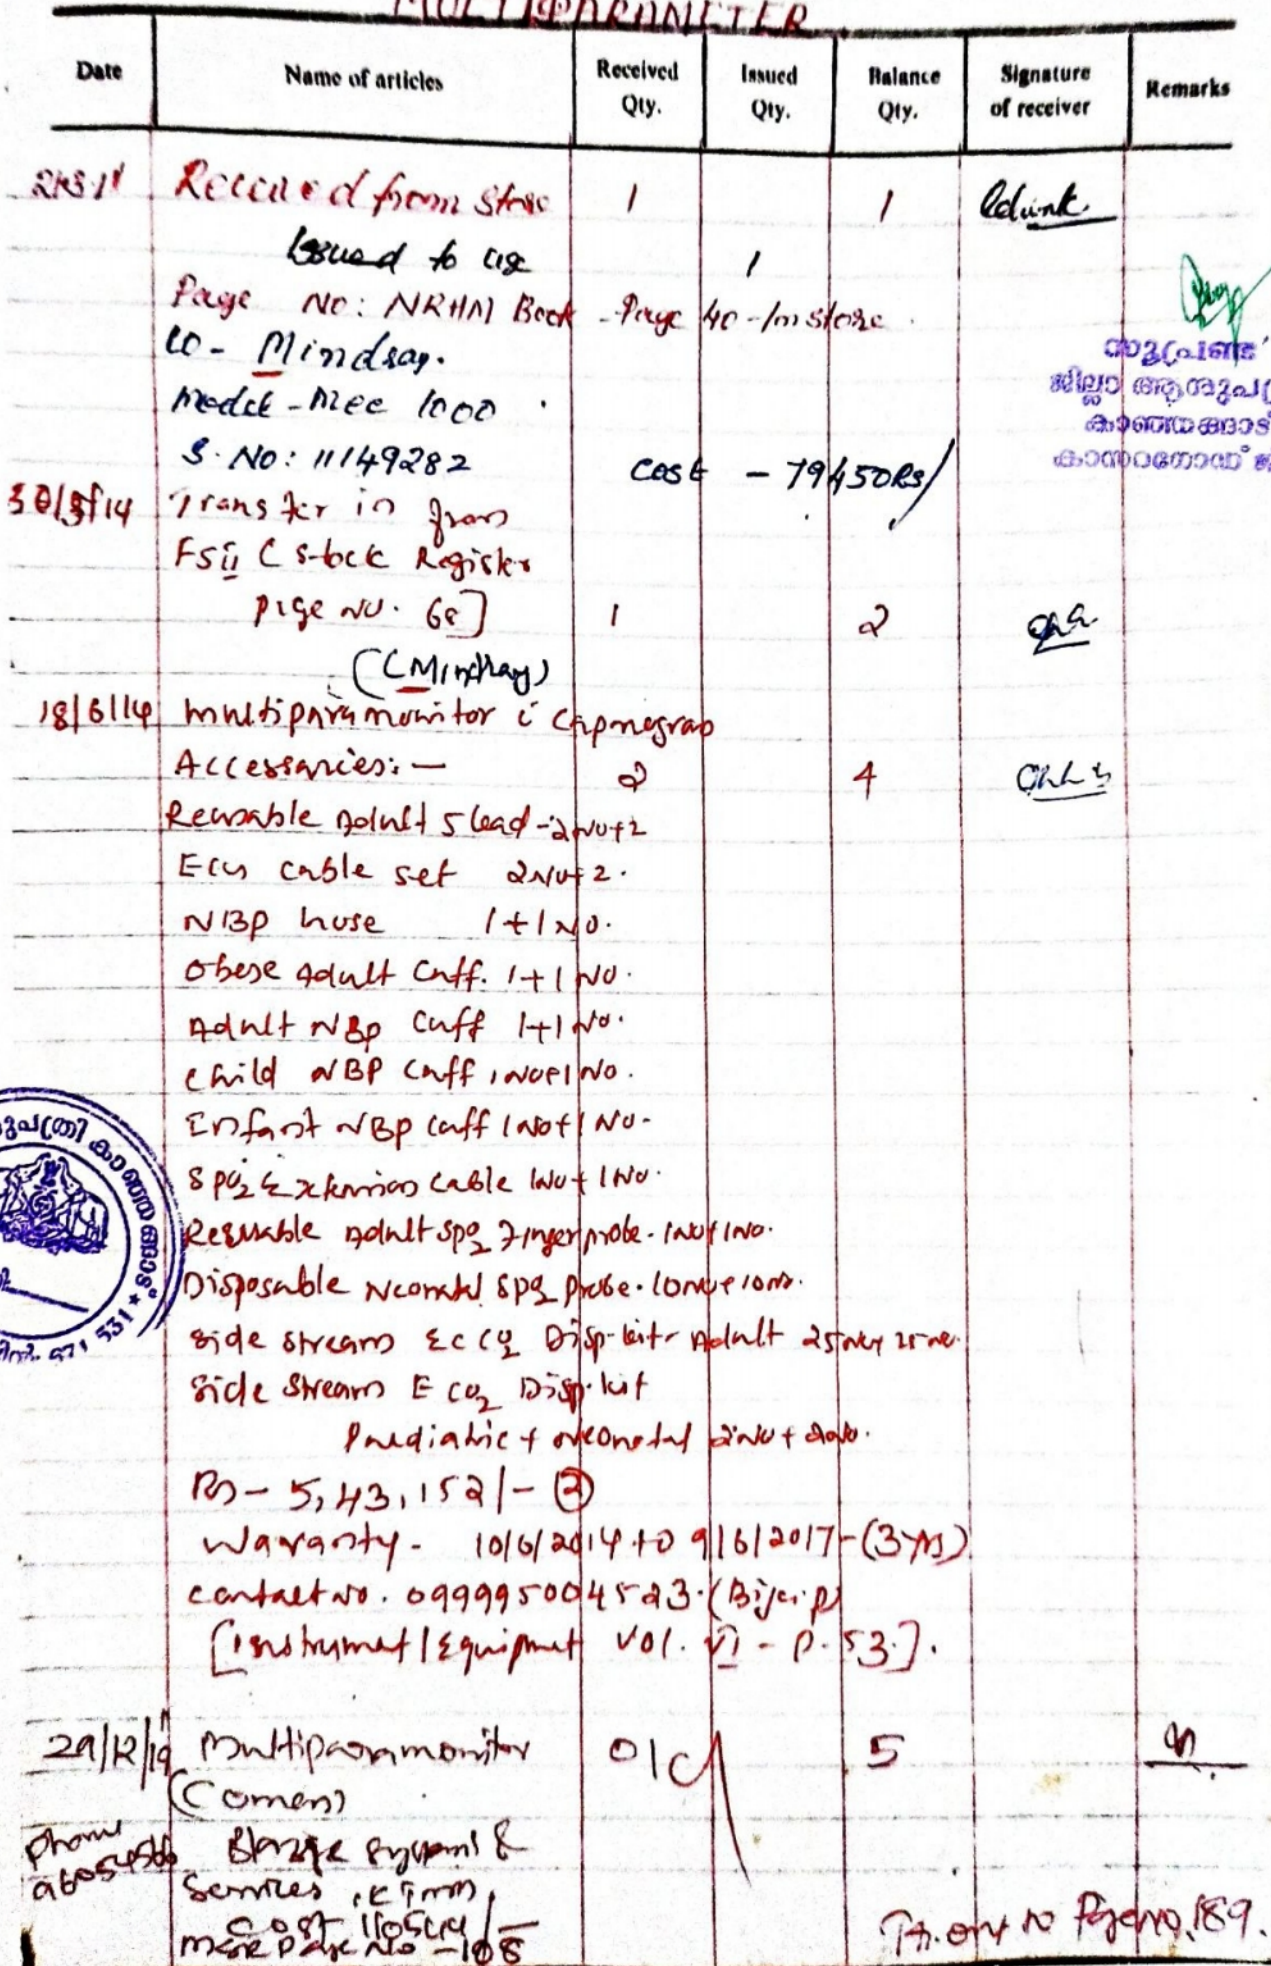 MULTIPARAMETER
Date Name of articles Received Qty. Issued Qty. Balance Qty. Signature of receiver Remarks
Received from Store 1 1
Issued to use 1
Page No: NRHM Book - Page 40 - Im store
Co - Mindray.
Model - Mec 1000
S. No: 11149282 Cost - 79450Rs/
സൂപ്രണ്ട്
ജില്ലാ ആശുപ
കാഞ്ഞങ്ങാട്
കാസറഗോഡ് ജ
Transfer in from
FSII C Stock Register
page No. 68]
1 2
(Mindray)
18/6/14 multiparamonitor c̄ Capnograp
Accessaries:- 2 4
Reusable Adult 5 lead - 2No+2
ECG cable set 2No+2.
NBP hose 1+1 No.
Obese Adult Cuff. 1+1 No.
Adult NBP Cuff 1+1 No.
Child NBP Cuff 1No+1 No.
Infant NBP Cuff 1No+1 No.
SPO2 Extension Cable 1No+1No.
Reusable Adult SPO2 Finger probe. 1No+1No.
Disposable Neonatal SPO2 probe. 10no+10no.
Side Stream ECCO2 Disp-kit - Adult 25No+25no.
Side Stream ECO2 Disp.kit
Paediatric + Neonatal 2No+2No.
Rs - 5,43,152/- (2)
Waranty - 10/6/2014 to 9/6/2017 - (3 yrs)
Contact No. 099995004523. (Biju.p)
[Instrument/Equipmet Vol. VI - P. 53.].
രുപത്രി കാഞ്ഞങ്ങാട് ★
531
29/12/19 Multiparamonitor 01 5
(Comen)
Phone
Systems &
Services,
Cost
Page No - 108
Page no. 189.